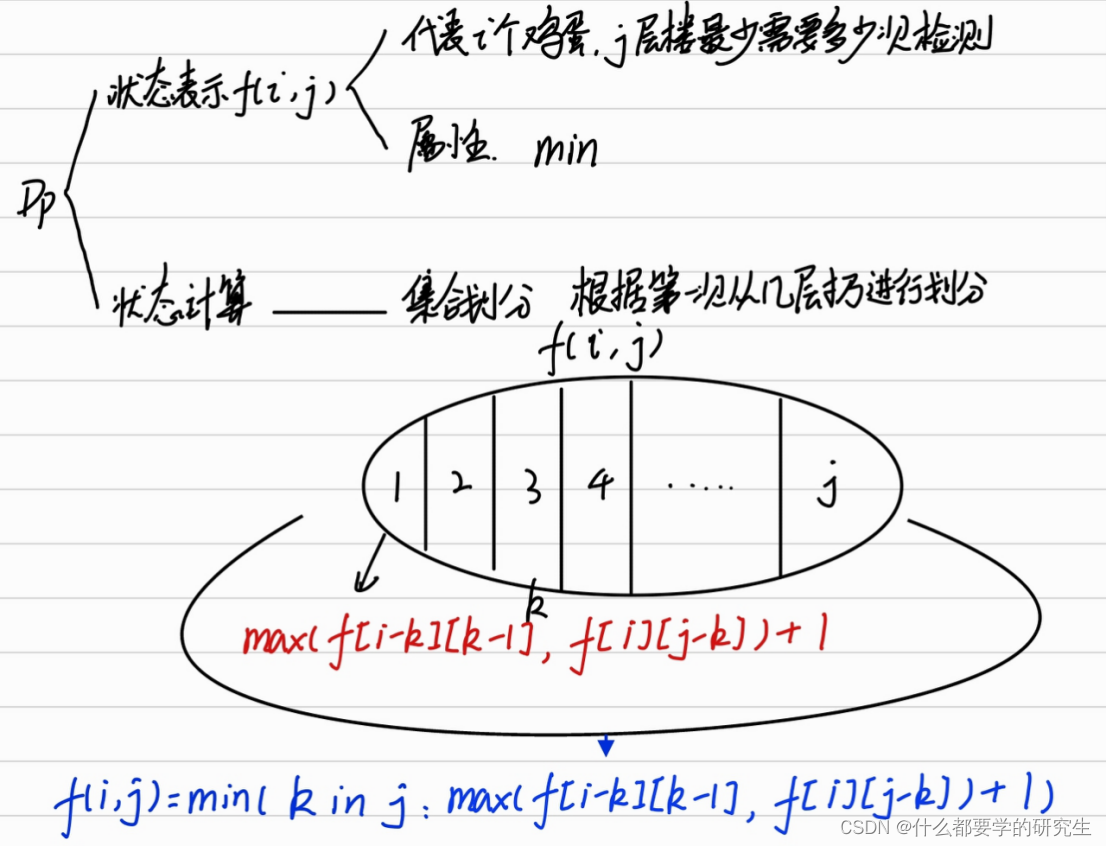 代表i个鸡蛋,j层楼最少需要多少次检测
状态表示f(i,j)
属性. min
Dp
状态计算 —— 集合划分 根据第一次从几层扔进行划分
f(i,j)
1 2 3 4 ..... j
k
max(f[i-k][k-1], f[i][j-k])+1
f(i,j)=min( k in j : max(f[i-k][k-1], f[i][j-k])+1)
CSDN @什么都要学的研究生